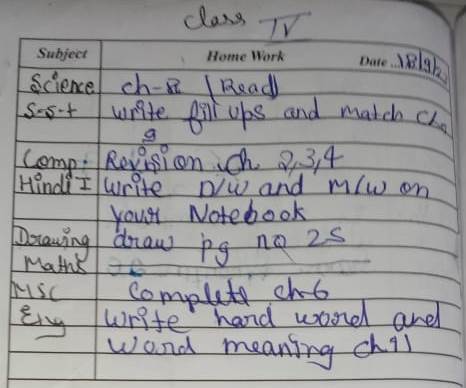 Class IV
Subject Home Work Date 18/9/2
Science ch-8 (Read)
S-S-t write fill ups and match Ch
9
Comp. Revision Ch 2,3,4
Hindi I write D/W and M/W on
your Notebook
Drawing draw pg no 25
Maths
MSC Complete ch-6
Eng write hard word and
word meaning ch 11